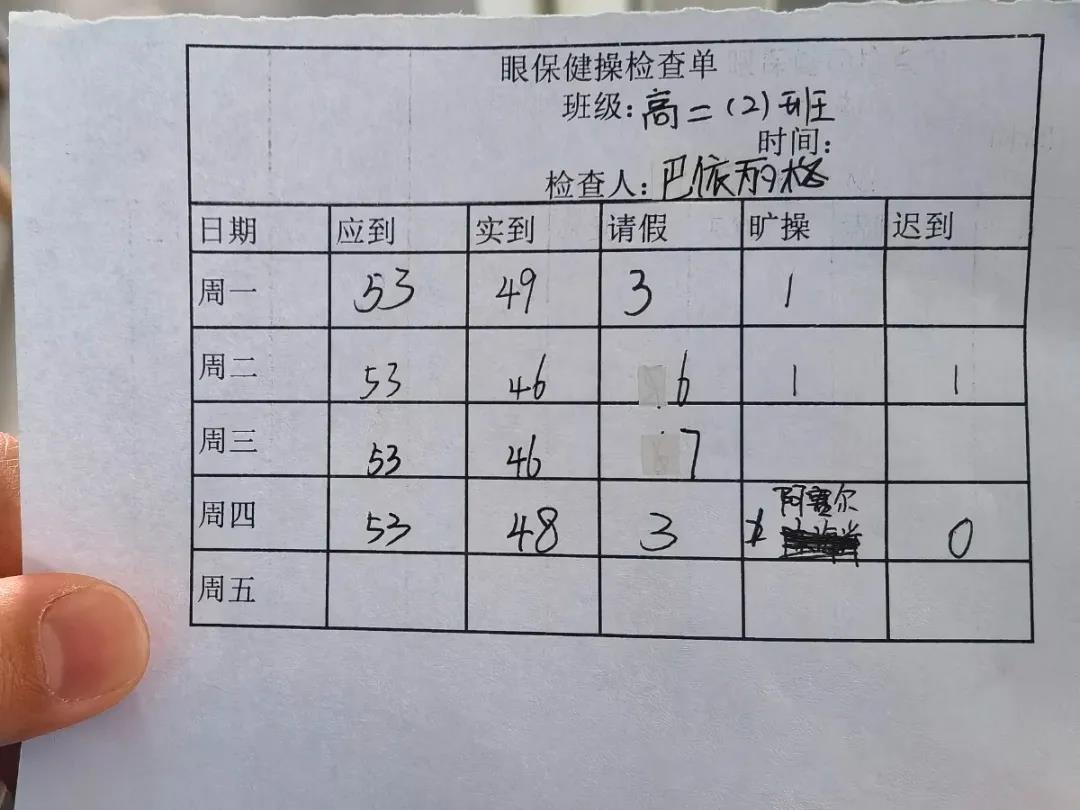 眼保健操检查单
班级:高二(2)班
时间:
检查人:巴依丽格
日期 应到 实到 请假 旷操 迟到
周一 53 49 3 1
周二 53 46 6 1 1
周三 53 46 7
周四 53 48 3 阿赛尔 0
周五